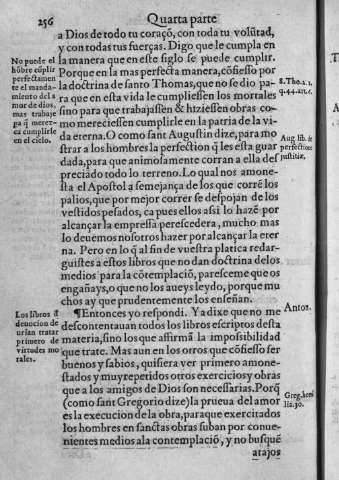 256
Quarta parte
a Dios de todo tu coraçõ, con toda tu volũtad,
y con todas tus fuerças. Digo que le cumpla en
la manera que en este siglo se puede cumplir.
Porque en la mas perfecta manera, cõfiesso por
la doctrina de santo Thomas, que no se dio pa
ra que en esta vida le cumpliessen los mortales
sino para que trabajassen & hiziessen obras co-
mo mereciessen cumplirle en la patria de la vi-
da eterna. O como sant Augustin dize, para mo
strar a los hombres la perfection q̃ les esta guar
dada, para que animosamente corran a ella des
preciãdo todo lo terreno. Lo qual nos amone-
sta el Apostol a semejança de los que corrẽ los
palios, que por mejor correr se despojan de los
vestidos pesados, ca pues ellos assi lo hazẽ por
alcançar la empressa perescedera, mucho mas
lo deuemos nosotros hazer por alcançar la eter
na. Pero en lo q̃ al fin de vuestra platica redar-
guistes a estos libros que no dan doctrina de los
medios para la cõtemplaciõ, paresceme que os
engañays, o que no los aueys leydo, porque mu
chos ay que prudentemente los enseñan.
¶Entonces yo respondi. Ya dixe que no me
descontentauan todos los libros escriptos desta
materia, sino los que affirmã la impossibilidad
que trate. Mas aun en los otros que cõfiesso fer
buenos y sabios, quisiera ver primero amone-
stados y muy repetidos otros exercicios y obras
que a los amigos de Dios son necessarias. Porq̃
(como sant Gregorio dize) la prueua del amor
es la execucion de la obra, para que exercitados
los hombres en sanctas obras suban por conue-
nientes medios ala contemplaciõ, y no busquẽ
atajos
No puede el
hõbre cũplir
perfectamen
te el manda-
miento del a
mor de dios,
mas trabaje
pa q̃ merez-
ca cumplirle
en el cielo.
Los libros d̃
deuocion de
urian tratar
primero de
virtudes mo
rales.
S. Tho. 2. 2.
q. 44. art. 6.
Aug. lib. de
perfectione
iustitiæ.
Anton.
Greg. homi
lia. 30.